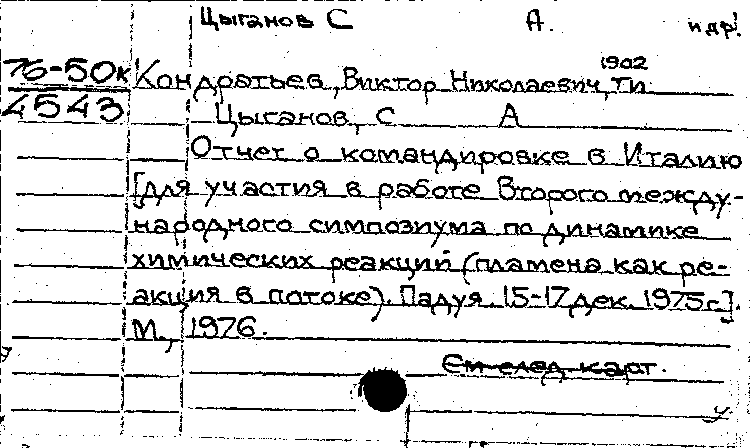 Цыганов С А. и др!
76-50к
4543
1902
Кондратьев, Виктор Николаевич, ти
Цыганов, С А
Отчет о командировке в Италию
[для участия в работе Второго между-
народного симпозиума по динамике
химических реакций (пламена как ре-
акция в потоке). Падуя. 15-17 дек. 1975г.].
М., 1976.
См след. карт.